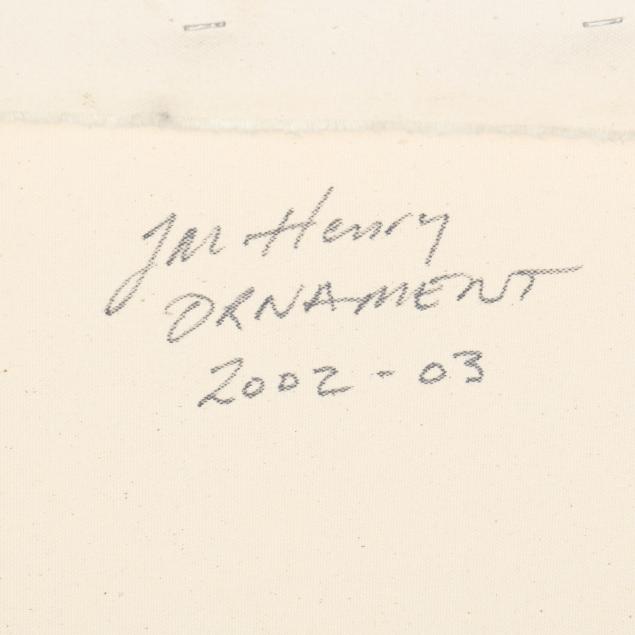 Jan Henry
ORNAMENT
2002-03